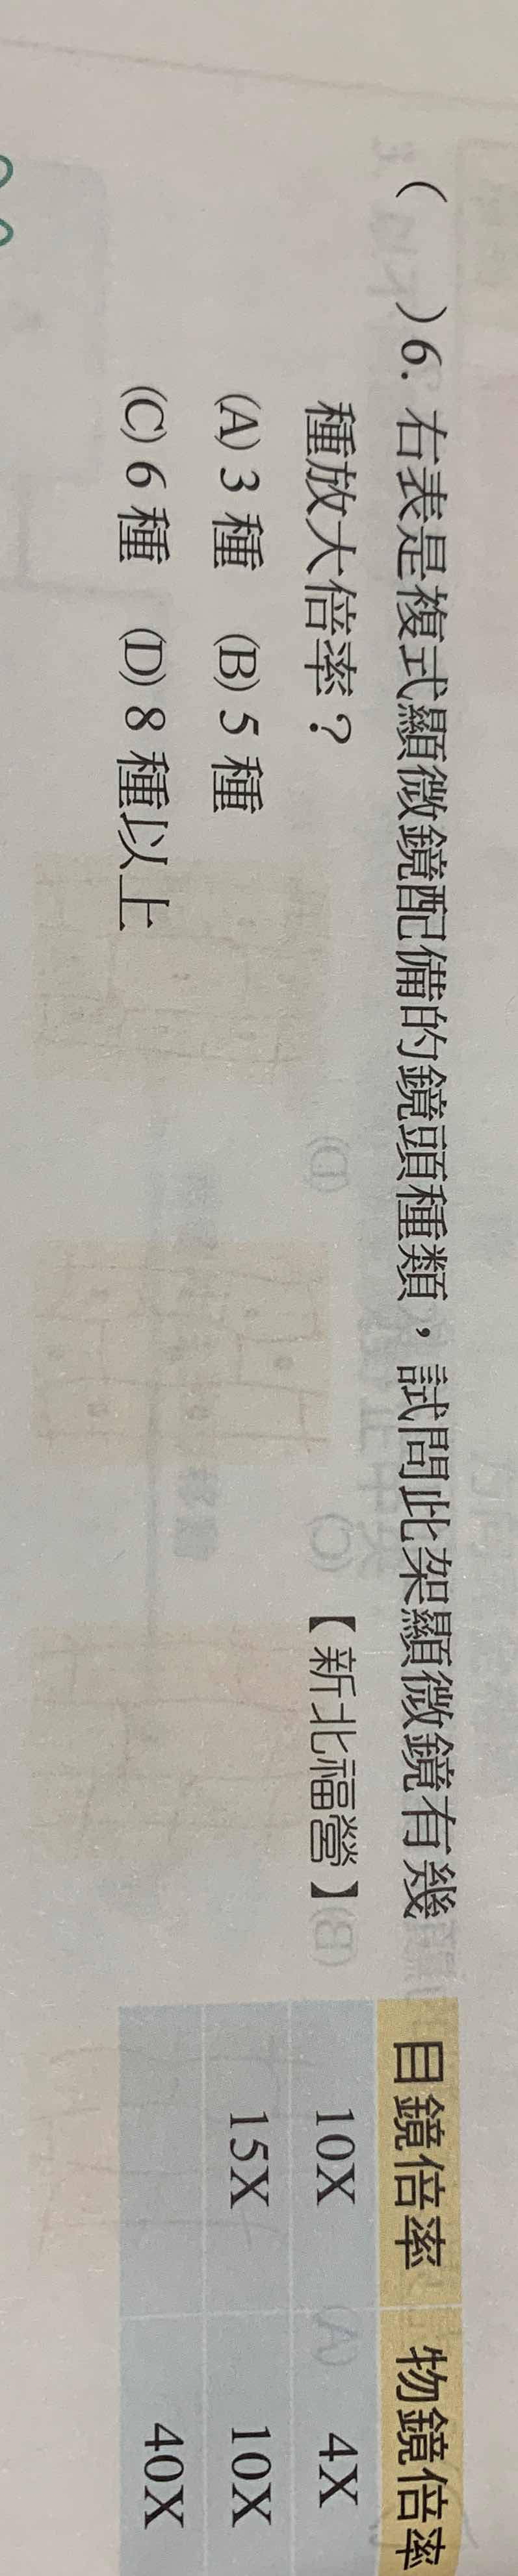 (　)6. 右表是複式顯微鏡配備的鏡頭種類，試問此架顯微鏡有幾
種放大倍率？【新北福營】
(A) 3 種 (B) 5 種
(C) 6 種 (D) 8 種以上
目鏡倍率 物鏡倍率
10X 4X
15X 10X
40X